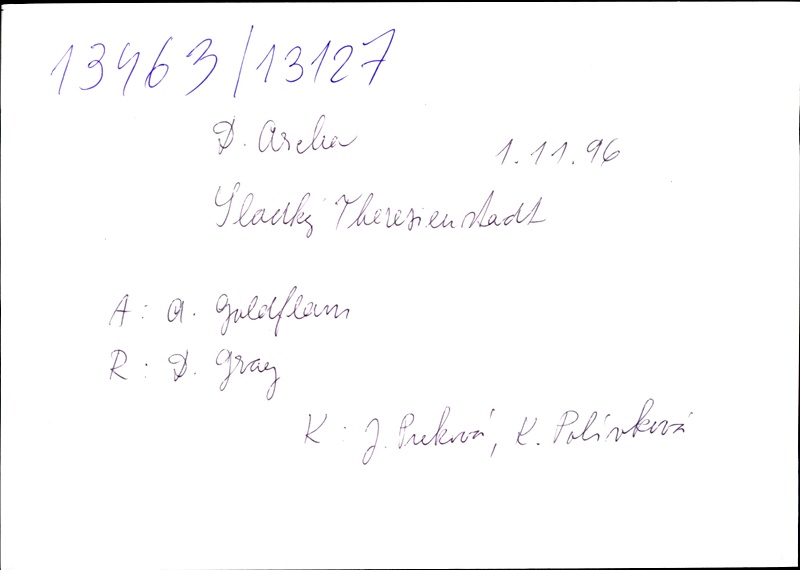 13463/13127
D. Archa 1.11.96
Sladký Theresienstadt
A: A. Goldflam
R: D. Gray
K: J. Preková, K. Polívková